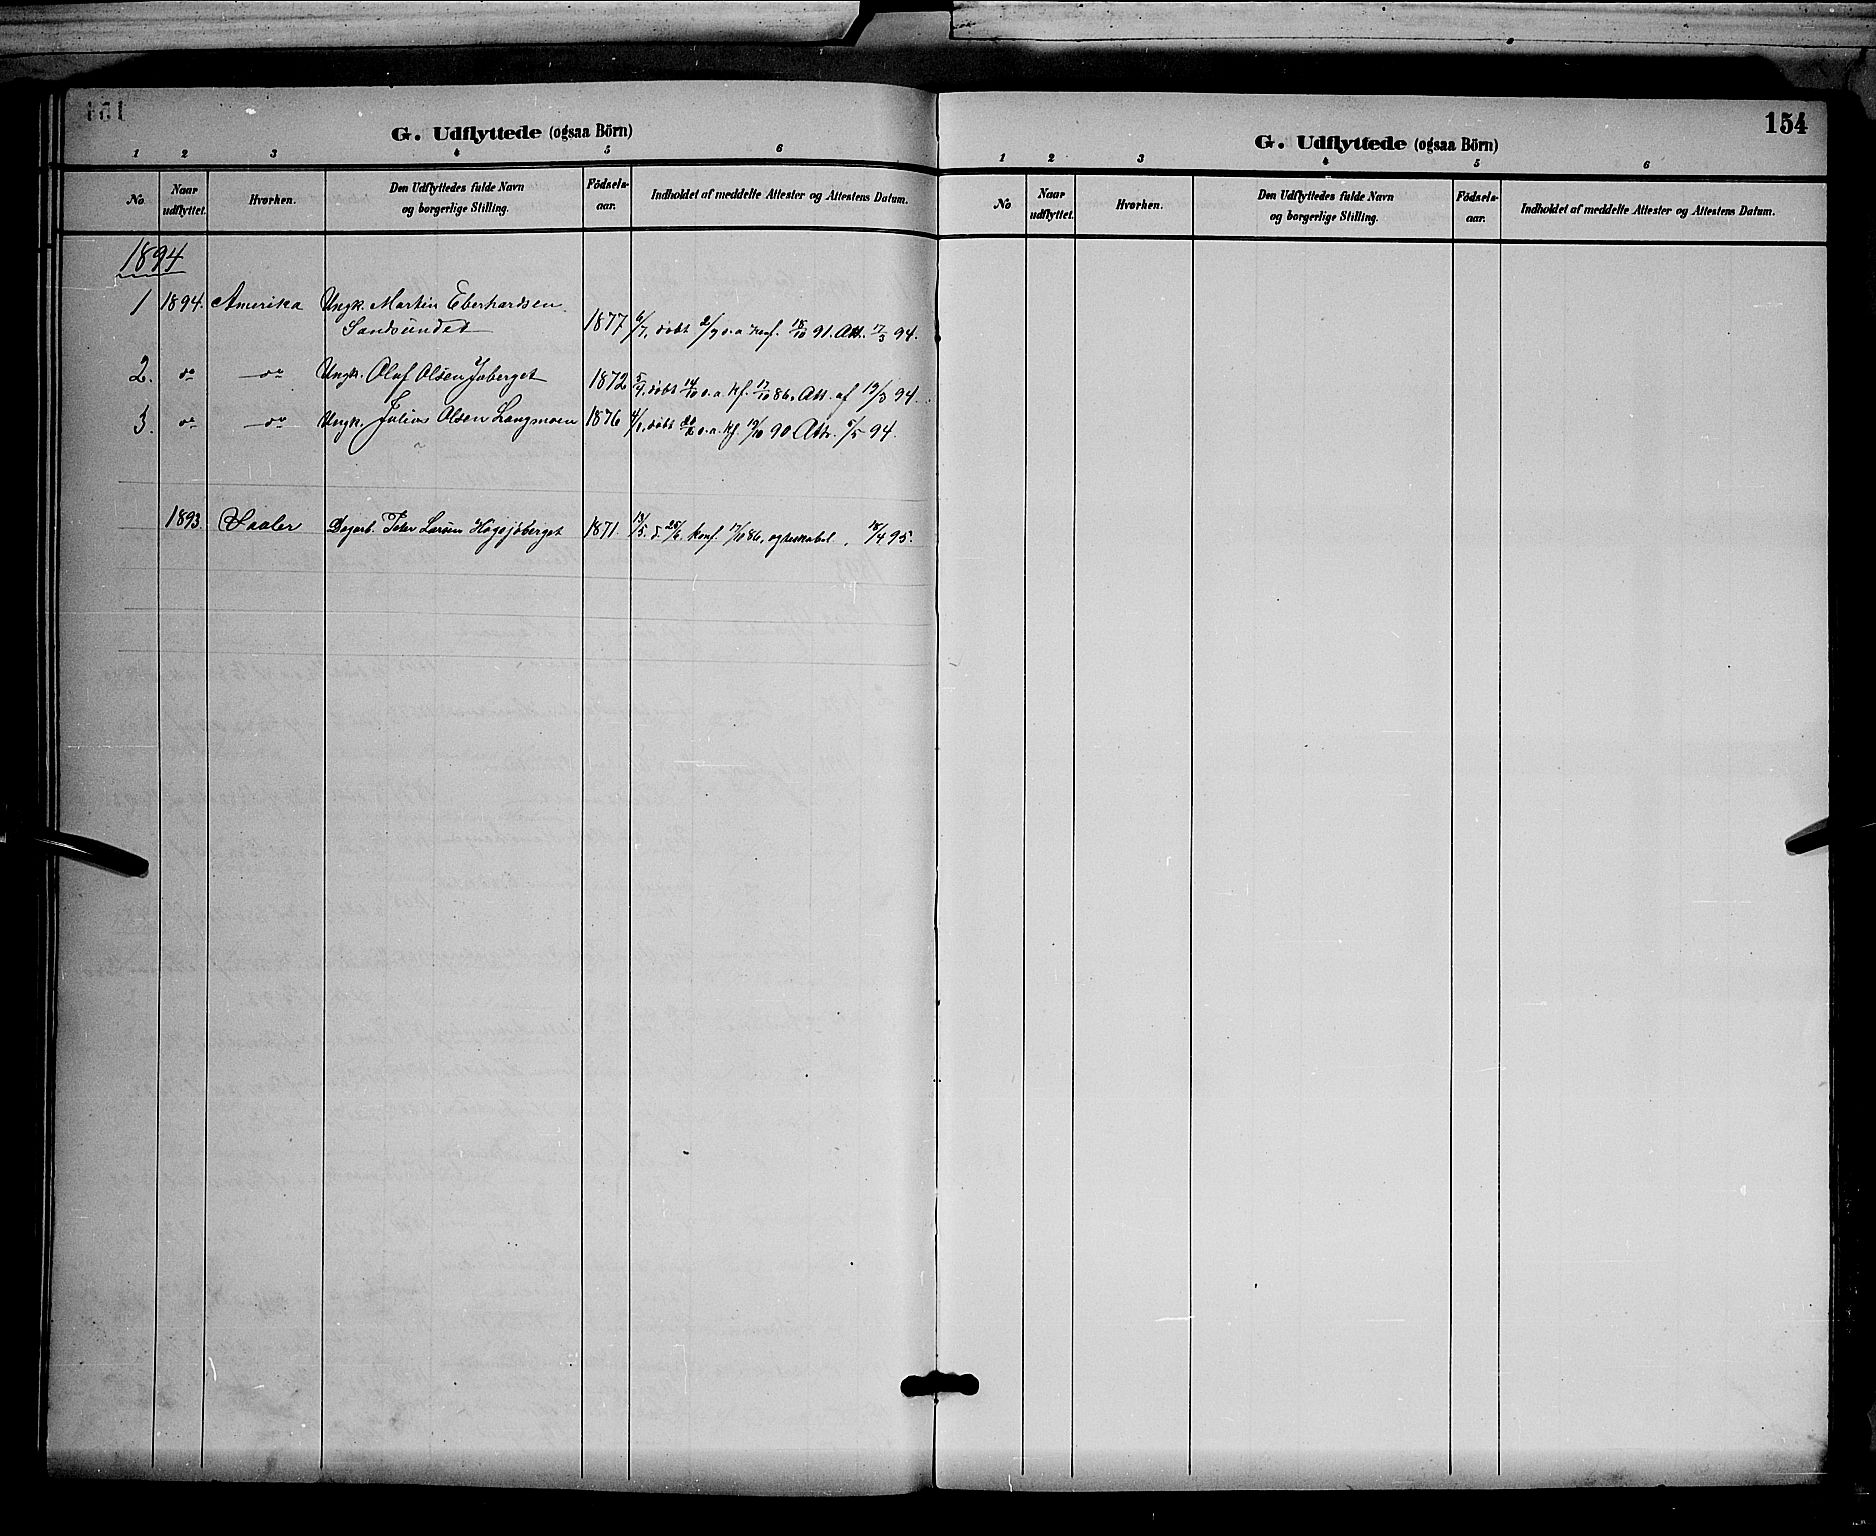 G. Udflyttede (ogsaa Börn)
1 2 3 4 5 6
No. Naar udflyttet. Hvorhen. Den Udflyttedes fulde Navn og borgerlige Stilling. Födsels-aar. Indholdet af meddelte Attester og Attestens Datum.
1894
1 1894. Amerika Ungk. Martin Eberhardsen
Sandsundet 1877 6/7, döbt 2/9 o.a konf. 18/10 91. Att. 17/3 94.
2. do do Ungk. Olaf Olsen Joberget 1872 5/9, döbt 14/10 o.a. kf. 17/10 86, Att. af 19/3 94.
3. do do Ungk. Julius Olsen Langmoen 1876 4/6, döbt o.a. kf. 19/10 90 Att. 5/5 94.
1893. Vaaler Dagarb. Peter Larsen Högsjöberget 1871. 13/5. d. 25/6. konf. 17/10 86, 18/4 95.
154
G. Udflyttede (ogsaa Börn)
1 2 3 4 5 6
No Naar udflyttet. Hvorhen. Den Udflyttedes fulde Navn og borgerlige Stilling. Födsels-aar. Indholdet af meddelte Attester og Attestens Datum.